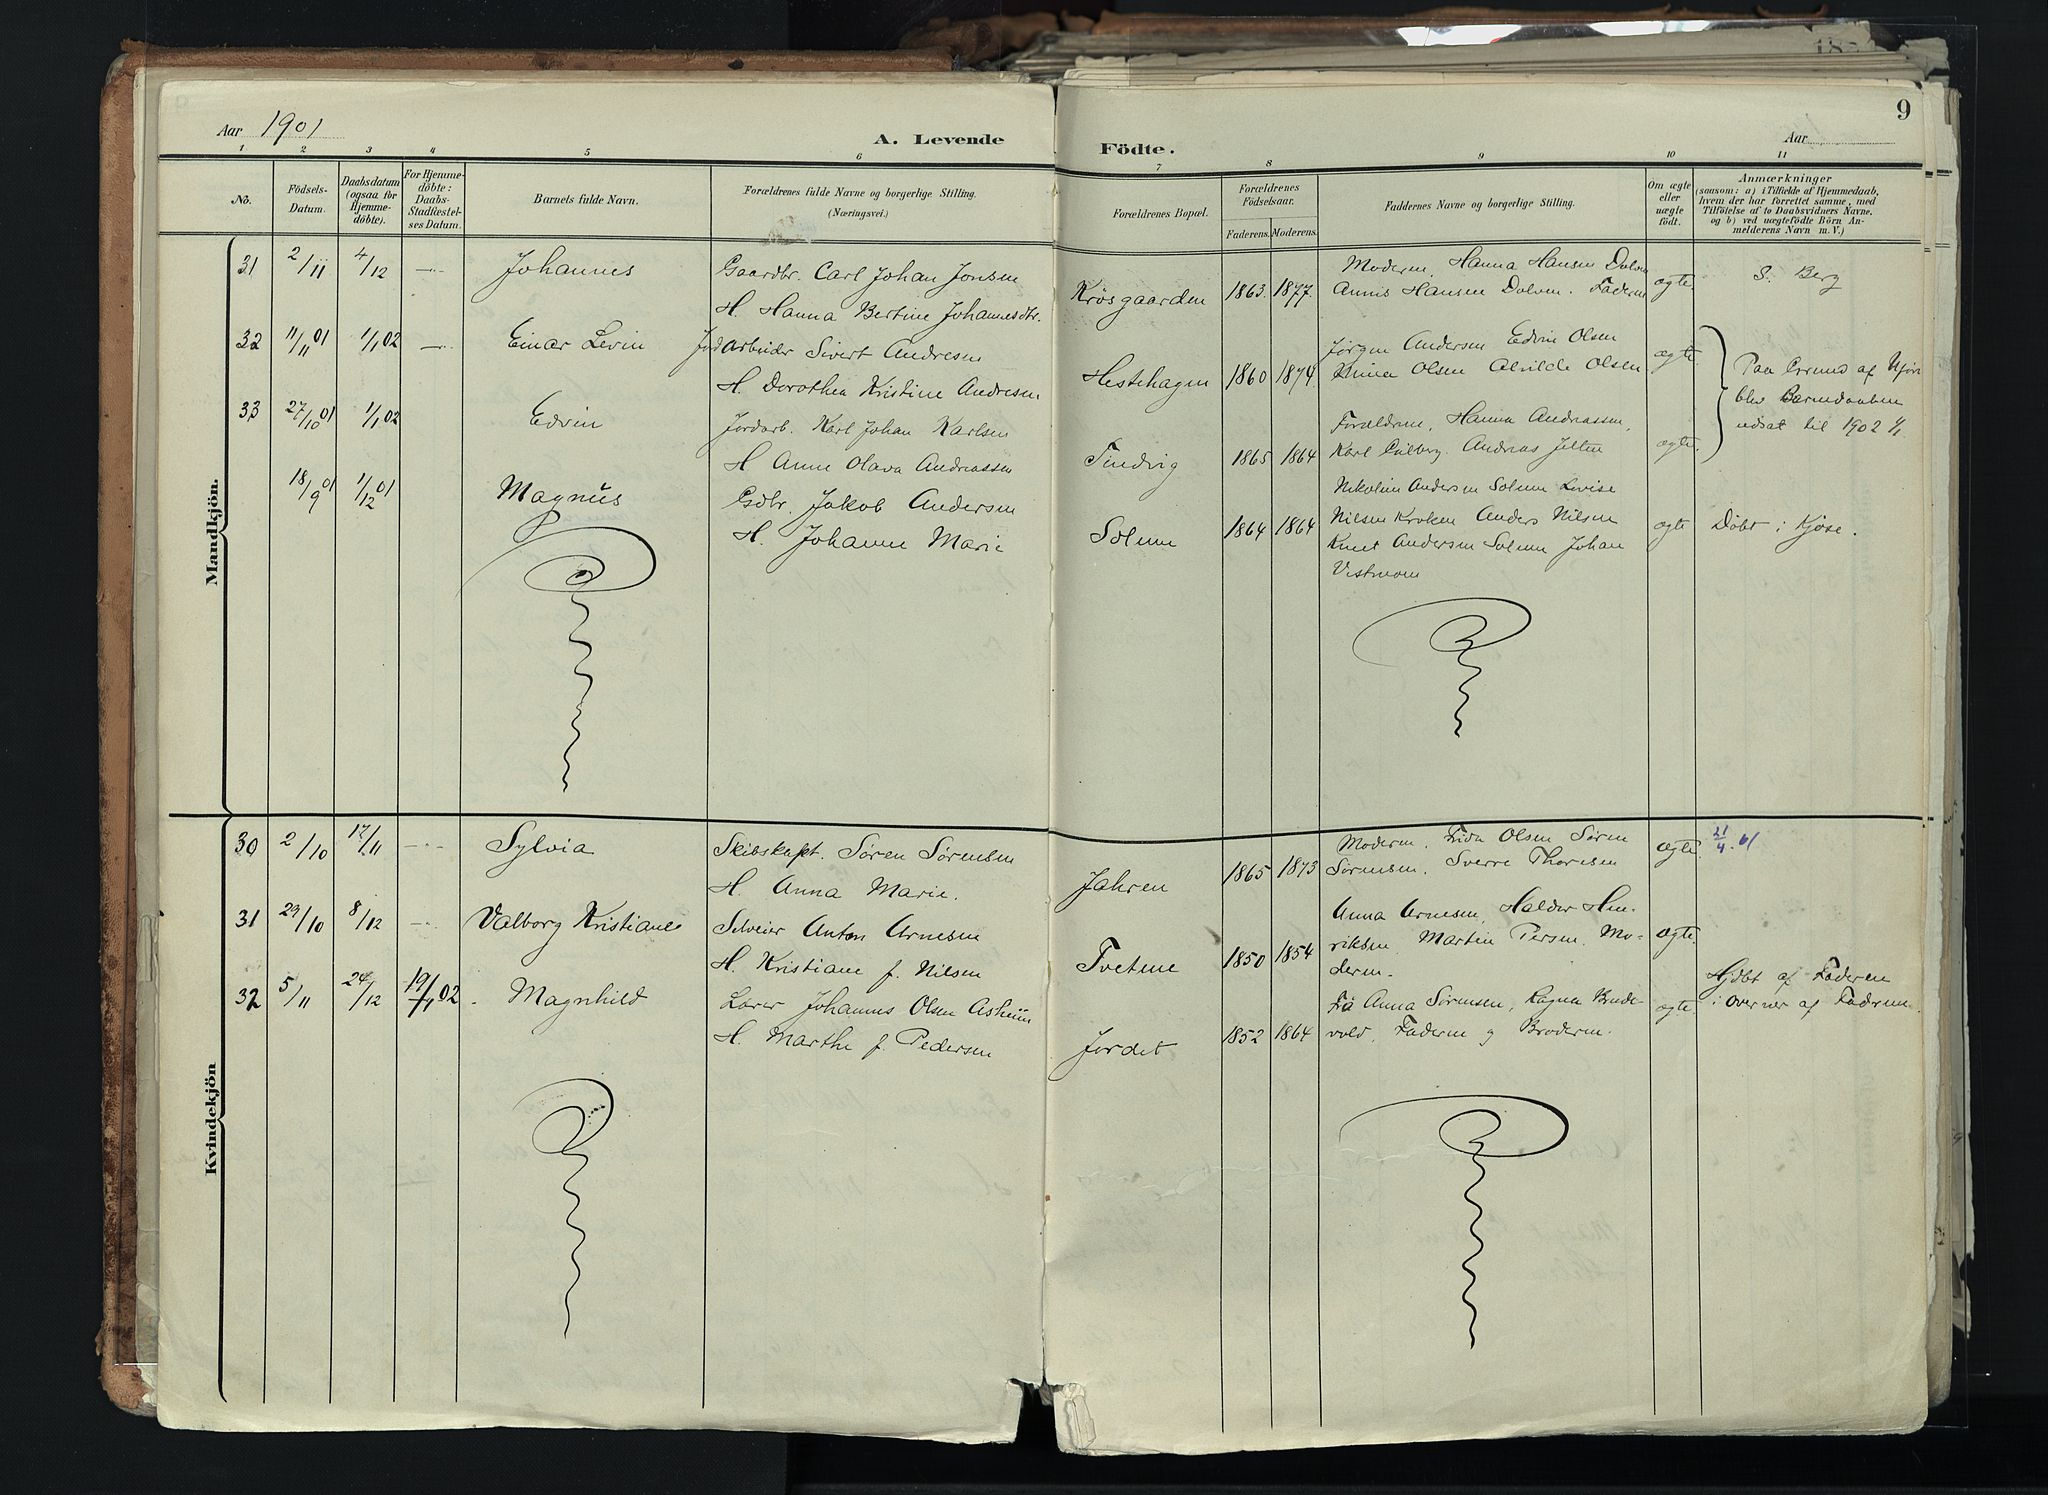 182
9
Aar 1901
A. Levende Födte.
Aar
1 2 3 4 5 6 7 8 9 10 11
No.
Födsels-Datum.
Daabsdatum (ogsaa för Hjemmedöbte).
For Hjemmedöbte: Daabs-Stadfæstelses Datum.
Barnets fulde Navn.
Forældrenes fulde Navne og borgerlige Stilling.
(Næringsvei.)
Forældrenes Bopæl.
Forældrenes Födselsaar.
Faderens. Moderens.
Faddernes Navne og borgerlige Stilling.
Om ægte eller uægte födt.
Anmærkninger
(saasom: a) i Tilfælde af Hjemmedaab,
hvem der har forrettet samme, med
Tilföielse af to Daabsvidners Navne.
og b) ved uægtefödte Börn An-
melderens Navn m. V.)
Mandkjön.
31 2/11 4/12 — Johannes
Gaardbr. Carl Johan Jonsen
H. Hanna Bertine Johannesdtr.
Krøsgaarden 1863. 1877.
Moderen, Hanna Hansen Dolven
Annis Hansen Dolven. Faderen
ægte
S. Berg
32 11/11 01 1/1 02 — Einar Levin
Jordarbeider Sivert Andresen
H. Dorothea Kristine Andresen
Hestehagen 1860 1874
Jørgen Andersen Edvin Olsen
Olsen Alvilde Olsen
ægte
Paa Grund af
blev Barnedaaben
udsat til 1902 1/1
33 27/10 01 1/1 02 Edvin
Jordarb. Karl Johan Karlsen
H Anne Olava Andreassen
Tindvig 1865 1864
Forældrene, Hanna Andreassen,
Karl Andreas
ægte.
18/9 01 1/12 01 Magnus
Gdbr. Jakob Andersen
H. Johanne Marie
Solum 1864 1864
Nikoline Andersen Solum Lovise
Nilsen Kroken Anders Nilsen
Knut Andersen Solum Johan
Vestmoen
ægte
Döbt i Kjose.
Kvindekjön
30 2/10 17/11 — Sylvia
Skibskapt. Søren Sørensen
H. Anna Marie.
Jahren 1865 1873
Moderen. Frida Olsen Søren
Sørensen. Sverre Thoresen
ægte.
21/4. 61
31 29/10 8/12 — Valborg Kristiane
Selveier Anton Arnesen
H. Kristiane f. Nilsen
Tvetene 1850 1854
Anna Arnesen, Haldor Hen-
riksen Martin Persen. Mo-
deren.
ægte.
32 5/11 24/12 19/1 02. Magnhild
Lærer Johannes Olsen Asheim
H. Marthe f. Pedersen
Jordet 1852 1864
Anna Sørensen, Ragna Brude-
vold, Faderen og Broderen.
ægte.
Hjdbt af Faderen
i overvær af Faderne.